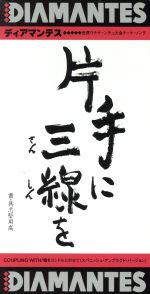 DIAMANTES
ディアマンテス
世界ウチナーンチュ大会テーマ・ソング
片手に
三線を
さん
しん
書・具志堅用高
COUPLING WITH/
(スパニッシュ・アンプラグド・バージョン)
DIAMANTES